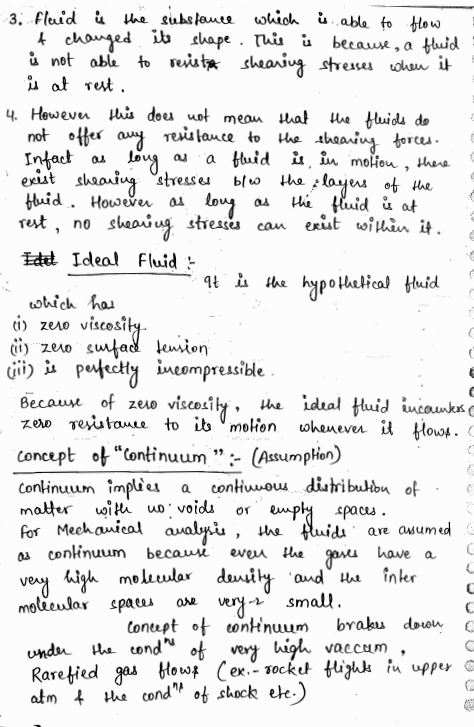 3. Fluid is the substance which is able to flow
& changed its shape. This is because, a fluid
is not able to resist shearing stresses when it
is at rest.
4. However this does not mean that the fluids do
not offer any resistance to the shearing forces.
Infact as long as a fluid is in motion, there
exist shearing stresses b/w the layers of the
fluid. However as long as the fluid is at
rest, no shearing stresses can exist within it.
Ideal Fluid :-
It is the hypothetical fluid
which has
(i) zero viscosity
(ii) zero surface tension
(iii) is perfectly incompressible.
Because of zero viscosity, the ideal fluid incounters
zero resistance to its motion whenever it flows.
Concept of "Continuum" :- (Assumption)
Continuum implies a continuous distribution of
matter with no voids or empty spaces.
For Mechanical analysis, the fluids are assumed
as continuum because even the gases have a
very high molecular density and the inter
molecular spaces are very-2 small.
Concept of continuum brakes down
under the condⁿˢ of very high vaccum,
Rarefied gas flows (ex.- rocket flights in upper
atm & the condⁿˢ of shock etc.)